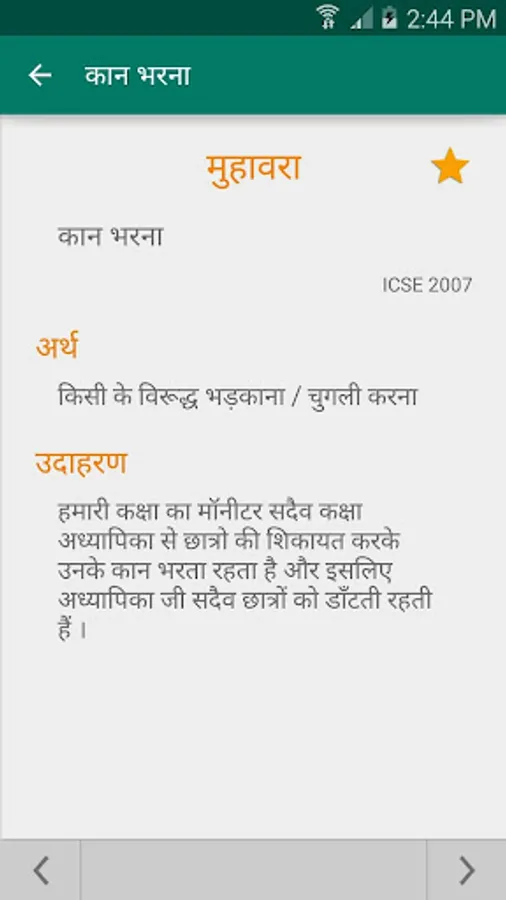 2:44 PM
कान भरना
मुहावरा
कान भरना
ICSE 2007
अर्थ
किसी के विरूद्ध भड़काना / चुगली करना
उदाहरण
हमारी कक्षा का मॉनीटर सदैव कक्षा
अध्यापिका से छात्रो की शिकायत करके
उनके कान भरता रहता है और इसलिए
अध्यापिका जी सदैव छात्रों को डाँटती रहती
हैं ।